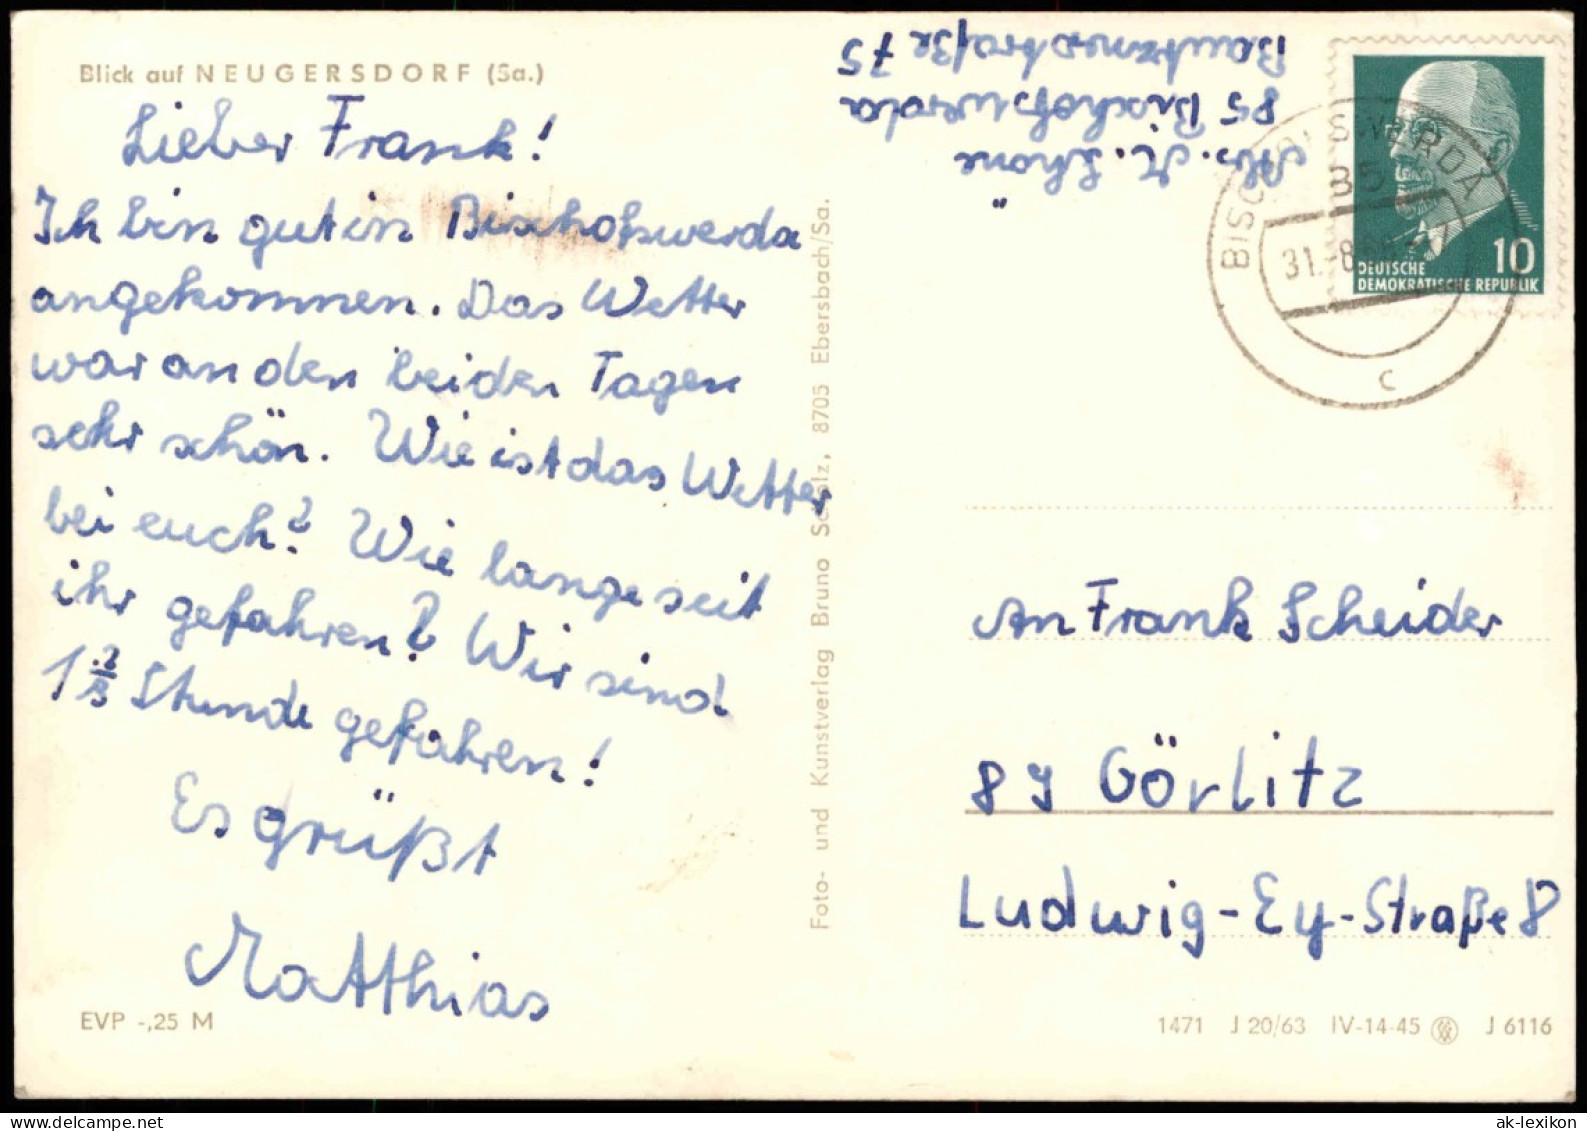 Blick auf NEUGERSDORF (Sa.)
Lieber Frank!
Ich bin gut in Bischofswerda
angekommen. Das Wetter
war an den beiden Tagen
sehr schön. Wie ist das Wetter
bei euch? Wie lange seit
ihr gefahren? Wir sind
1 2/3 Stunde gefahren!
Es grüßt
Matthias
EVP -,25 M
Foto- und Kunstverlag Bruno Scholz, 8705 Ebersbach/Sa.
Abs. M.
85 Bischofswerda
Bautznerstraße 75
BISCHOFSWERDA
85
31.-8.
c
10
DEUTSCHE
DEMOKRATISCHE REPUBLIK
An Frank Scheider
89 Görlitz
Ludwig-Ey-Straße 8
1471 J 20/63 IV-14-45 J 6116
ak-lexikon